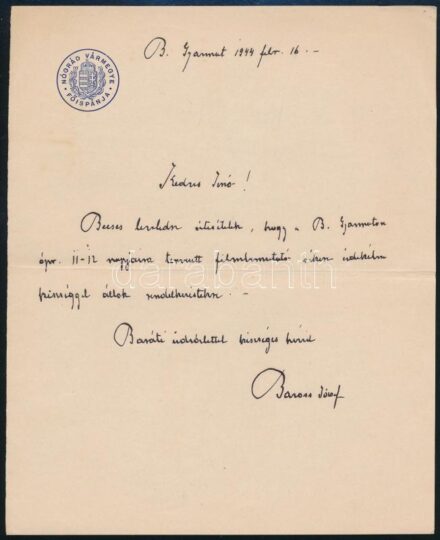 NÓGRÁD VÁRMEGYE FŐISPÁNJA
B. Gyarmat 1944 febr. 16.-
Kedves Jenő!
Becses leveledre értesítelek, hogy a B. Gyarmaton
ápr. 11-12 napjaira tervezett filmbemutató
készséggel állok rendelkezésedre.-
Baráti üdvözlettel készséges híved
Baross József
darabanth